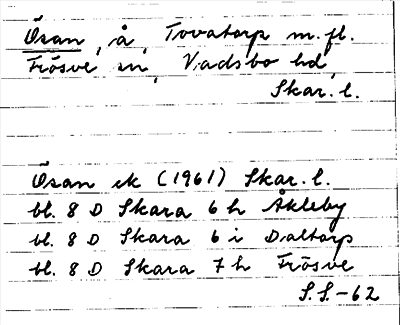 Ösan, å, Tovatorp m. fl.
Frösve sn, Vadsbo hd,
Skar. l.
Ösan ek (1961) Skar. l.
bl. 8 D Skara 6 h Åkleby
bl. 8 D Skara 6 i Daltorp
bl. 8 D Skara 7 h Frösve
S.S.-62